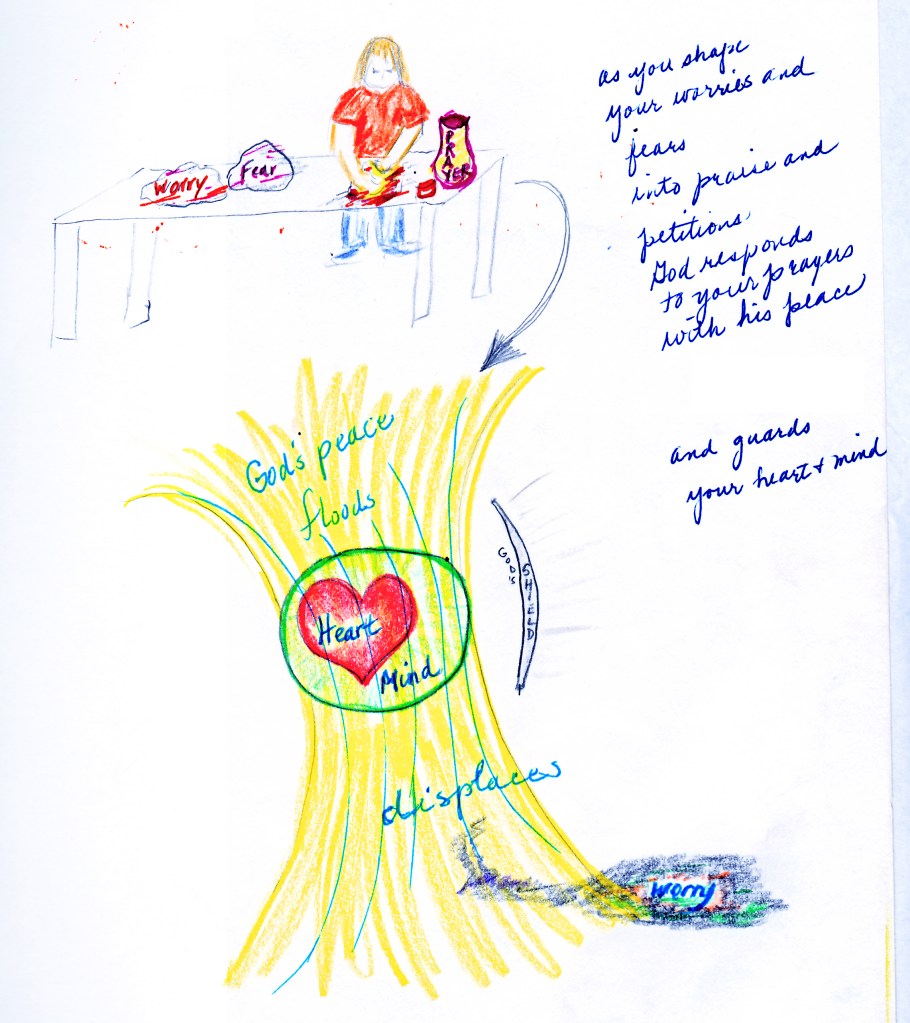 as you shape
your worries and
fears
into praise and
petitions
God responds
to your prayers
with his peace
Worry
Fear
PRAYER
and guards
your heart & mind
God's peace
floods
GOD'S
SHIELD
Heart
Mind
displaces
worry